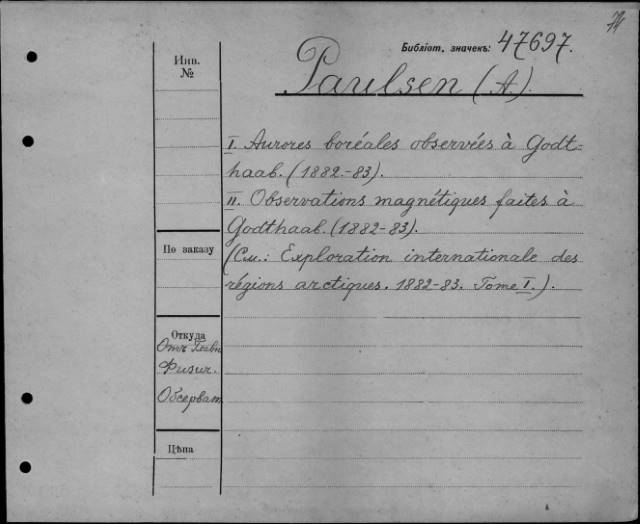 74
Библіот. значекъ: 47697.
Инв.
№
Paulsen (A).
I. Aurores boréales observées à Godt-
haab. (1882.-83).
II. Observations magnétiques faites à
Godthaab. (1882-83).
(См.: Exploration internationale des
régions arctiques. 1882-83. Tome I.).
По заказу
Откуда
Отъ Главн
Физич.
Обсерват.
Цѣна